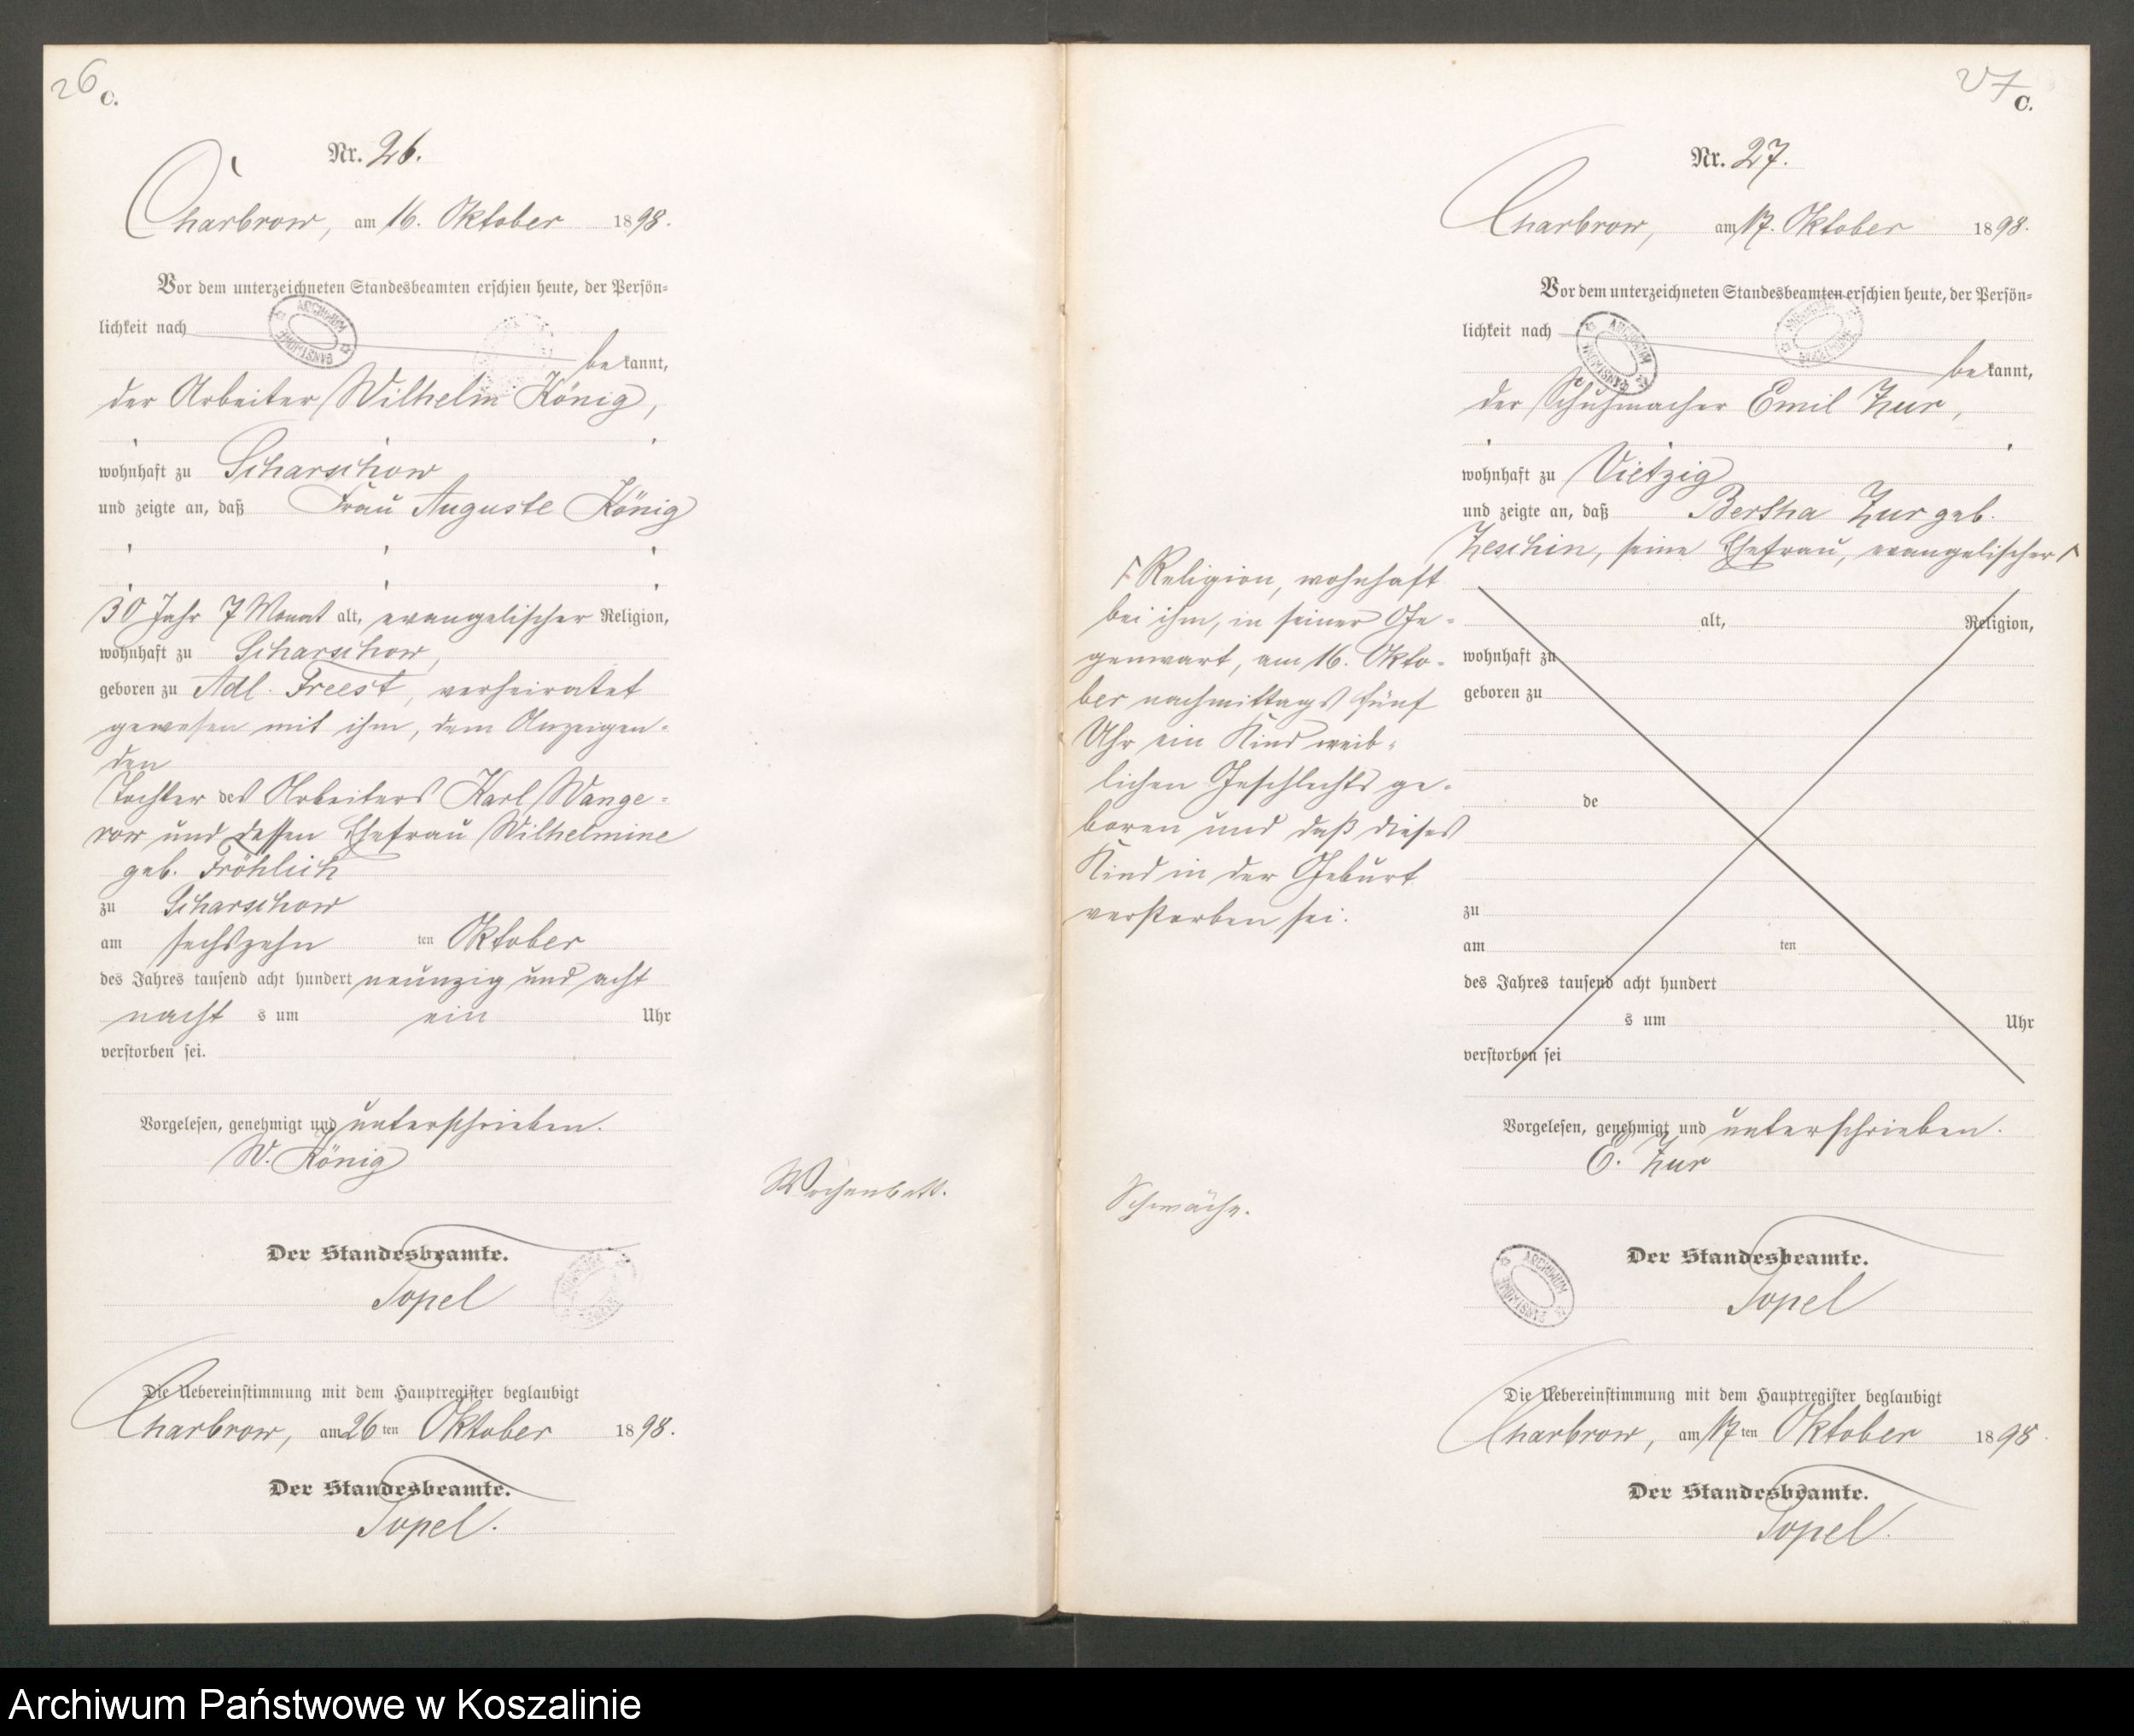 26
C.
Nr. 26.
Charbrow, am 16. Oktober 1898.
Vor dem unterzeichneten Standesbeamten erschien heute, der Persön-
lichkeit nach
be kannt,
der Arbeiter Wilhelm König,
wohnhaft zu Scharschow
und zeigte an, daß Frau Auguste König
30 Jahr 7 Monat alt, evangelischer Religion,
wohnhaft zu Scharschow,
geboren zu Adl. Freest, verheiratet
gewesen mit ihm, dem Anzeigen-
den
Tochter des Arbeiters Karl Wange-
row und dessen Ehefrau Wilhelmine
geb. Fröhlich
zu Scharschow
am sechszehn ten Oktober
des Jahres tausend acht hundert neunzig und acht
nacht s um ein Uhr
verstorben sei.
Vorgelesen, genehmigt und unterschrieben.
W. König
Wochenbett.
Der Standesbeamte.
Topel
Die Uebereinstimmung mit dem Hauptregister beglaubigt
Charbrow, am 26 ten Oktober 1898.
Der Standesbeamte.
Topel.
27
C.
Nr. 27.
Charbrow, am 17. Oktober 1898.
Vor dem unterzeichneten Standesbeamten erschien heute, der Persön-
lichkeit nach
be kannt,
der Schuhmacher Emil Zur,
wohnhaft zu Vietzig
und zeigte an, daß Bertha Zur geb.
Zeschin, seine Ehefrau, evangelischer
Religion, wohnhaft
bei ihm, in seiner Ge-
genwart, am 16. Okto-
ber nachmittags fünf
Uhr ein Kind weib-
lichen Geschlechts ge-
boren und daß dieses
Kind in der Geburt
verstorben sei.
alt, Religion,
wohnhaft zu
geboren zu
de
zu
am ten
des Jahres tausend acht hundert
s um Uhr
verstorben sei
Vorgelesen, genehmigt und unterschrieben.
E. Zur
Schwäche.
Der Standesbeamte.
Topel
Die Uebereinstimmung mit dem Hauptregister beglaubigt
Charbrow, am 17 ten Oktober 1898
Der Standesbeamte.
Topel.
Archiwum Państwowe w Koszalinie